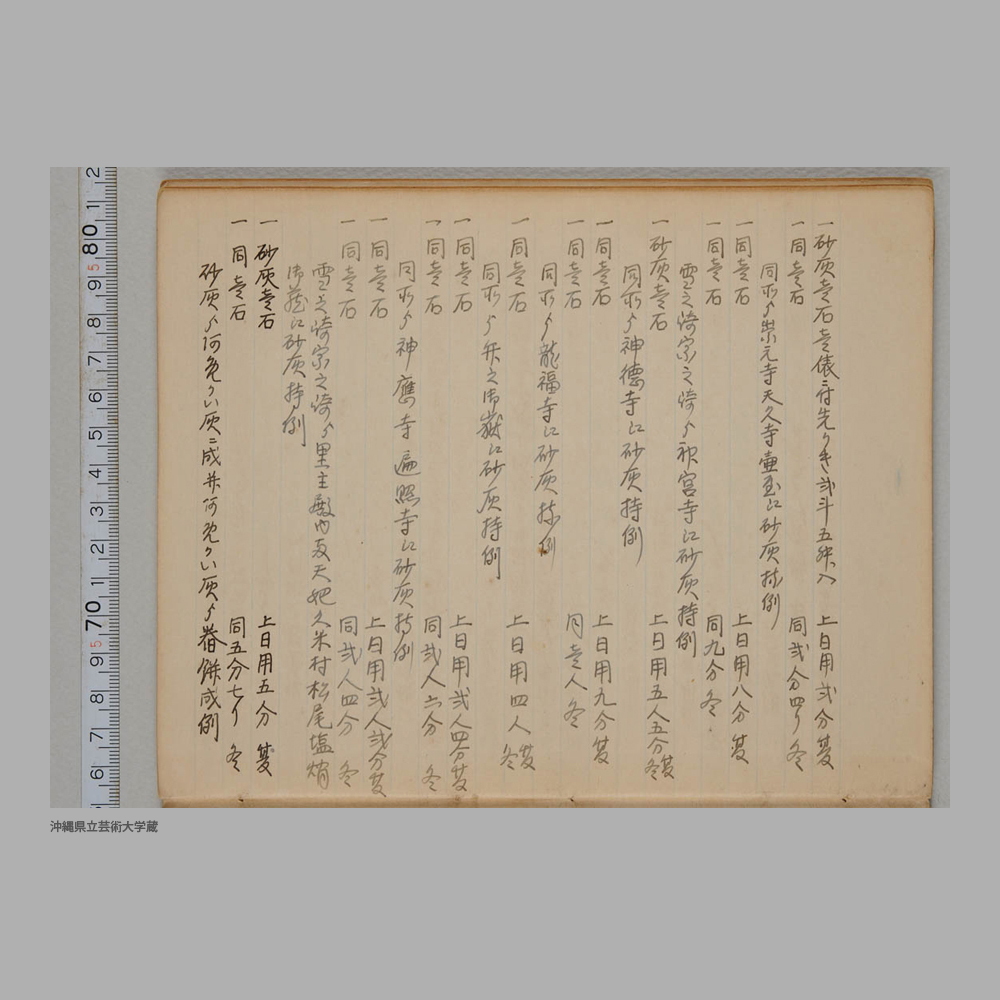 一砂灰壱石壱俵ニ付先ゟき弐斗五舛入　上日用弐分 夏
一同壱石　同弐分四リ 冬
同所ゟ崇元寺天久寺壷玉江砂灰持例
一同壱石　上日用八分 夏
一同壱石　同九分 冬
雪之崎宗之崎ゟ神宮寺江砂灰持例
一砂灰壱石　上日用五人五分 夏冬
同所ゟ神徳寺江砂灰持例
一同壱石　上日用九分 夏
一同壱石　同壱人 冬
同所ゟ龍福寺江砂灰持例
一同壱石　上日用四人 夏冬
同所ゟ弁之御嶽江砂灰持例
一同壱石　上日用弐人四分 夏
一同壱石　同弐人六分 冬
同所ゟ神應寺遍照寺江砂灰持例
一同壱石　上日用弐人弐分 夏
一同壱石　同弐人四分 冬
雪之崎宗之崎ゟ里主殿内又天妃久米村松尾塩焇
御蔵江砂灰持例
一砂灰壱石　上日用五分 夏
一同壱石　同五分七リ 冬
砂灰ゟ何色々い灰ニ成井何色々い灰ゟ春餅成例
沖縄県立芸術大学蔵
2
1
80
9 5
8
7
6
5
4
3
2
1
70
9 5
8
7
6